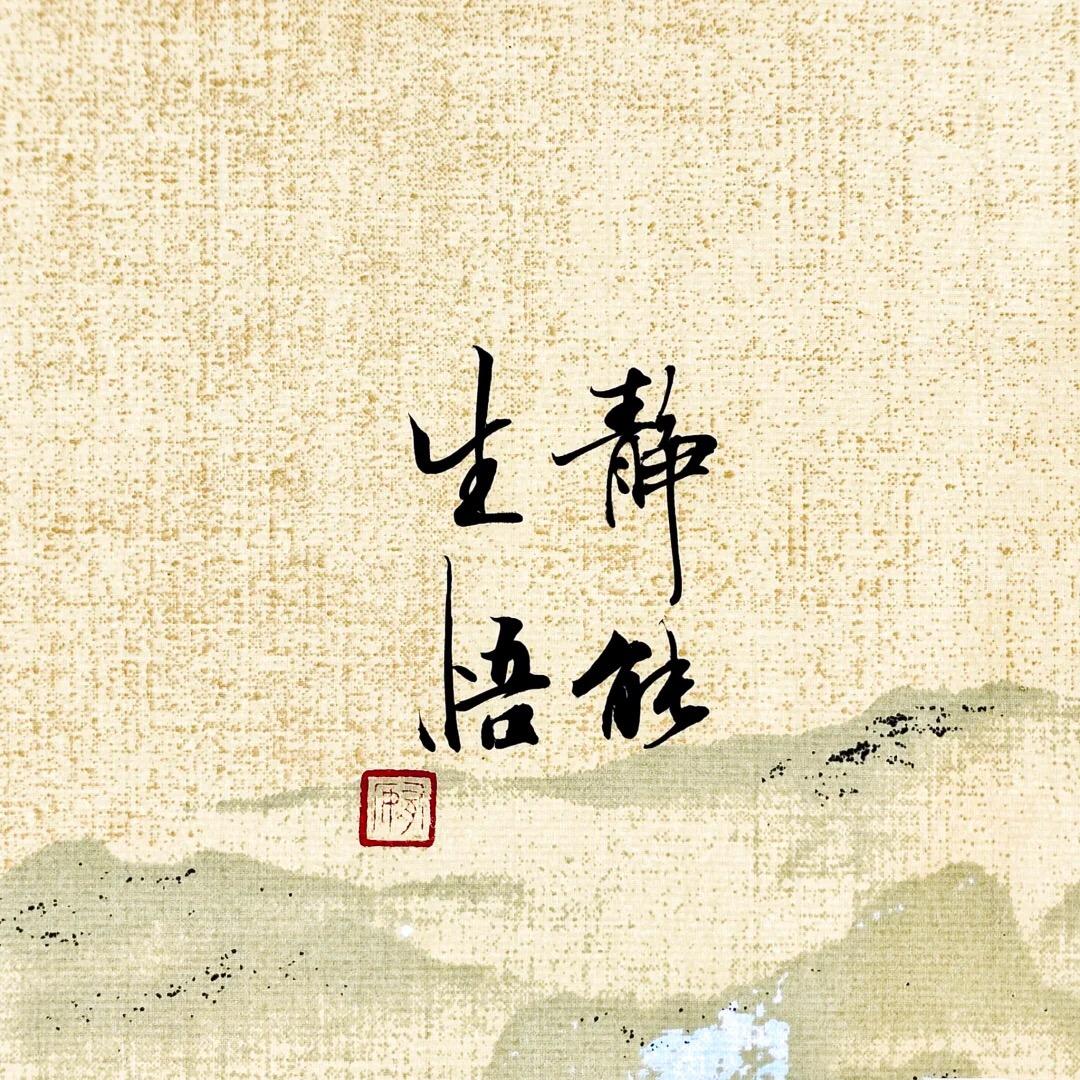 静能
生悟